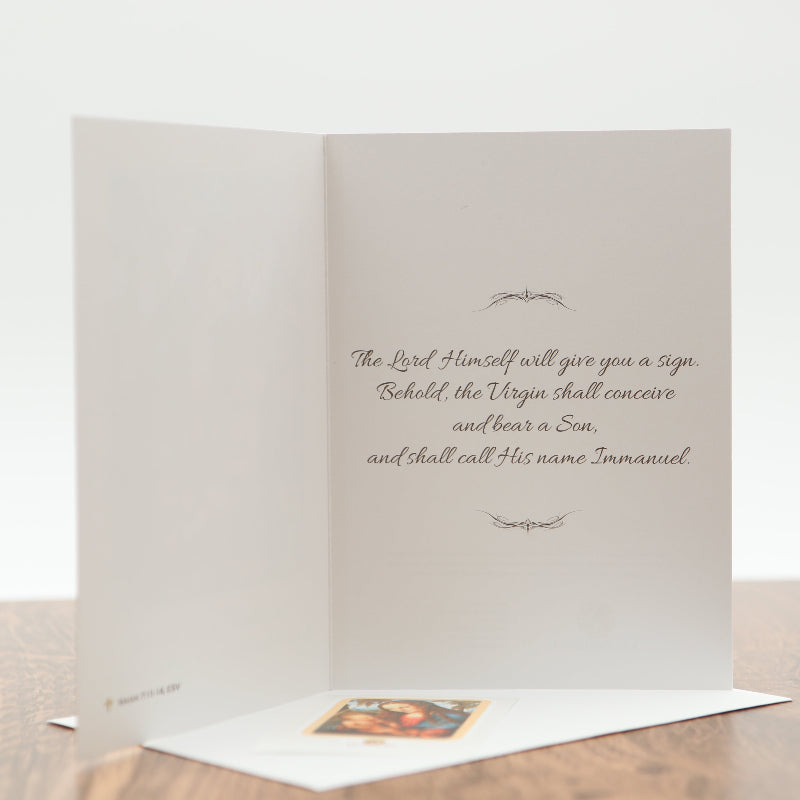 The Lord Himself will give you a sign.
Behold, the Virgin shall conceive
and bear a Son,
and shall call His name Immanuel.